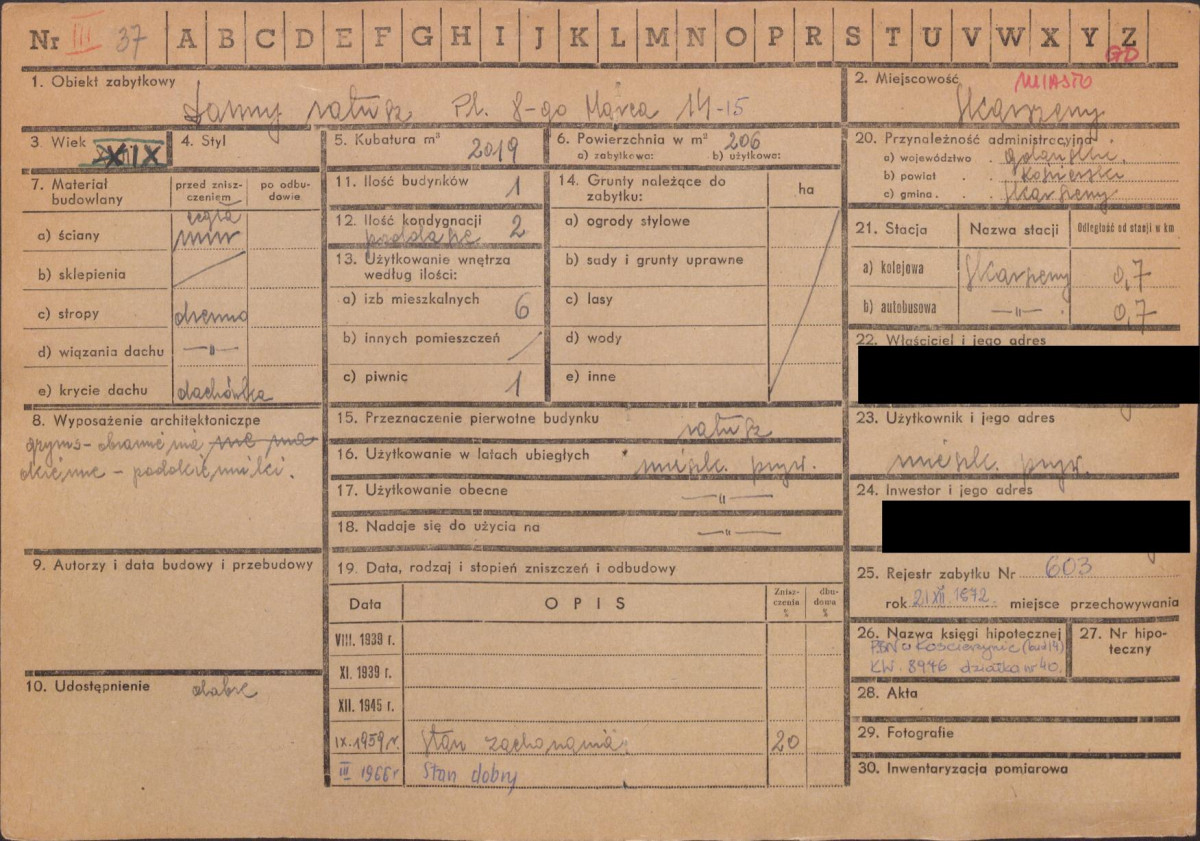 Nr III 37 A B C D E F G H I J K L M N O P R S T U V W X Y Z
GD
1. Obiekt zabytkowy
dawny ratusz Pl. 8-go Marca 14-15
2. Miejscowość MIASTO
Skarszewy
3. Wiek XIX
4. Styl
5. Kubatura m³ 2019
6. Powierzchnia w m² 206
a) zabytkowa: b) użytkowa:
20. Przynależność administracyjna
a) województwo gdańskie.
b) powiat kościerski
c) gmina Skarszewy
7. Materiał budowlany
przed zniszczeniem
po odbudowie
a) ściany cegła mur
b) sklepienia
c) stropy drewno
d) wiązania dachu —"—
e) krycie dachu dachówka
11. Ilość budynków 1
12. Ilość kondygnacji 2
poddasze
13. Użytkowanie wnętrza według ilości:
a) izb mieszkalnych 6
b) innych pomieszczeń
c) piwnic 1
14. Grunty należące do zabytku:
ha
a) ogrody stylowe
b) sady i grunty uprawne
c) lasy
d) wody
e) inne
21. Stacja Nazwa stacji Odległość od stacji w km
a) kolejowa Skarszewy 0,7
b) autobusowa —"— 0,7
22. Właściciel i jego adres
8. Wyposażenie architektoniczne
gzyms-
- podokienniki.
15. Przeznaczenie pierwotne budynku ratusz
16. Użytkowanie w latach ubiegłych mieszk. pryw.
17. Użytkowanie obecne —"—
18. Nadaje się do użycia na —"—
23. Użytkownik i jego adres
mieszk. pryw.
24. Inwestor i jego adres
9. Autorzy i data budowy i przebudowy
10. Udostępnienie dobre
19. Data, rodzaj i stopień zniszczeń i odbudowy
Data OPIS Zniszczenia % dbudowa %
VIII. 1939 r.
XI. 1939 r.
XII. 1945 r.
IX. 1959 r. Stan zachowania 20
III 1966 r Stan dobry
25. Rejestr zabytku Nr 603
rok 21 XII. 1972 miejsce przechowywania
26. Nazwa księgi hipotecznej
PBN w Kościerzynie (bud 14)
KW. 8946 działka nr 40.
27. Nr hipoteczny
28. Akta
29. Fotografie
30. Inwentaryzacja pomiarowa